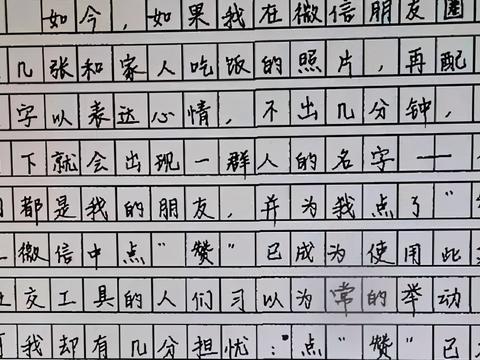 如今，如果我在微信朋友圈
几张和家人吃饭的照片，再配
字以表达心情，不出几分钟，
下就会出现一群人的名字——
都是我的朋友，并为我点了“
微信中点“赞”已成为使用此
交工具的人们习以为常的举动
我却有几分担忧：“点“赞”已